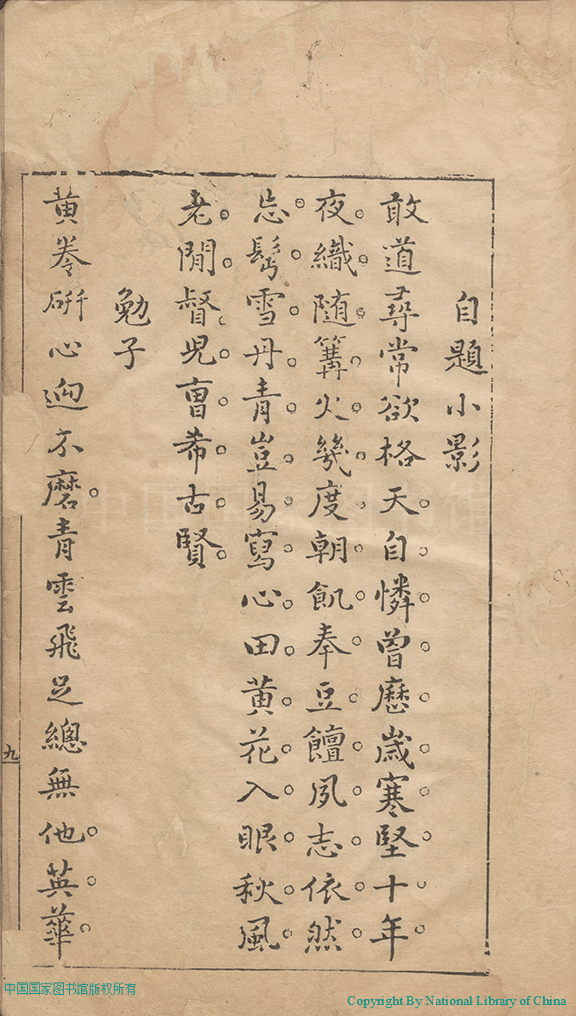 自題小影
敢道尋常欲格天自憐曾歷歲寒堅十年
夜織随篝火幾度朝飢奉豆饘夙志依然
忘髩雪丹青豈易寫心田黄花入眼秋風
老閒督兒曹希古賢
勉子
黄卷硏心逈不磨青雲飛足總無他英華
九
中国国家图书馆版权所有
Copyright By National Library of China